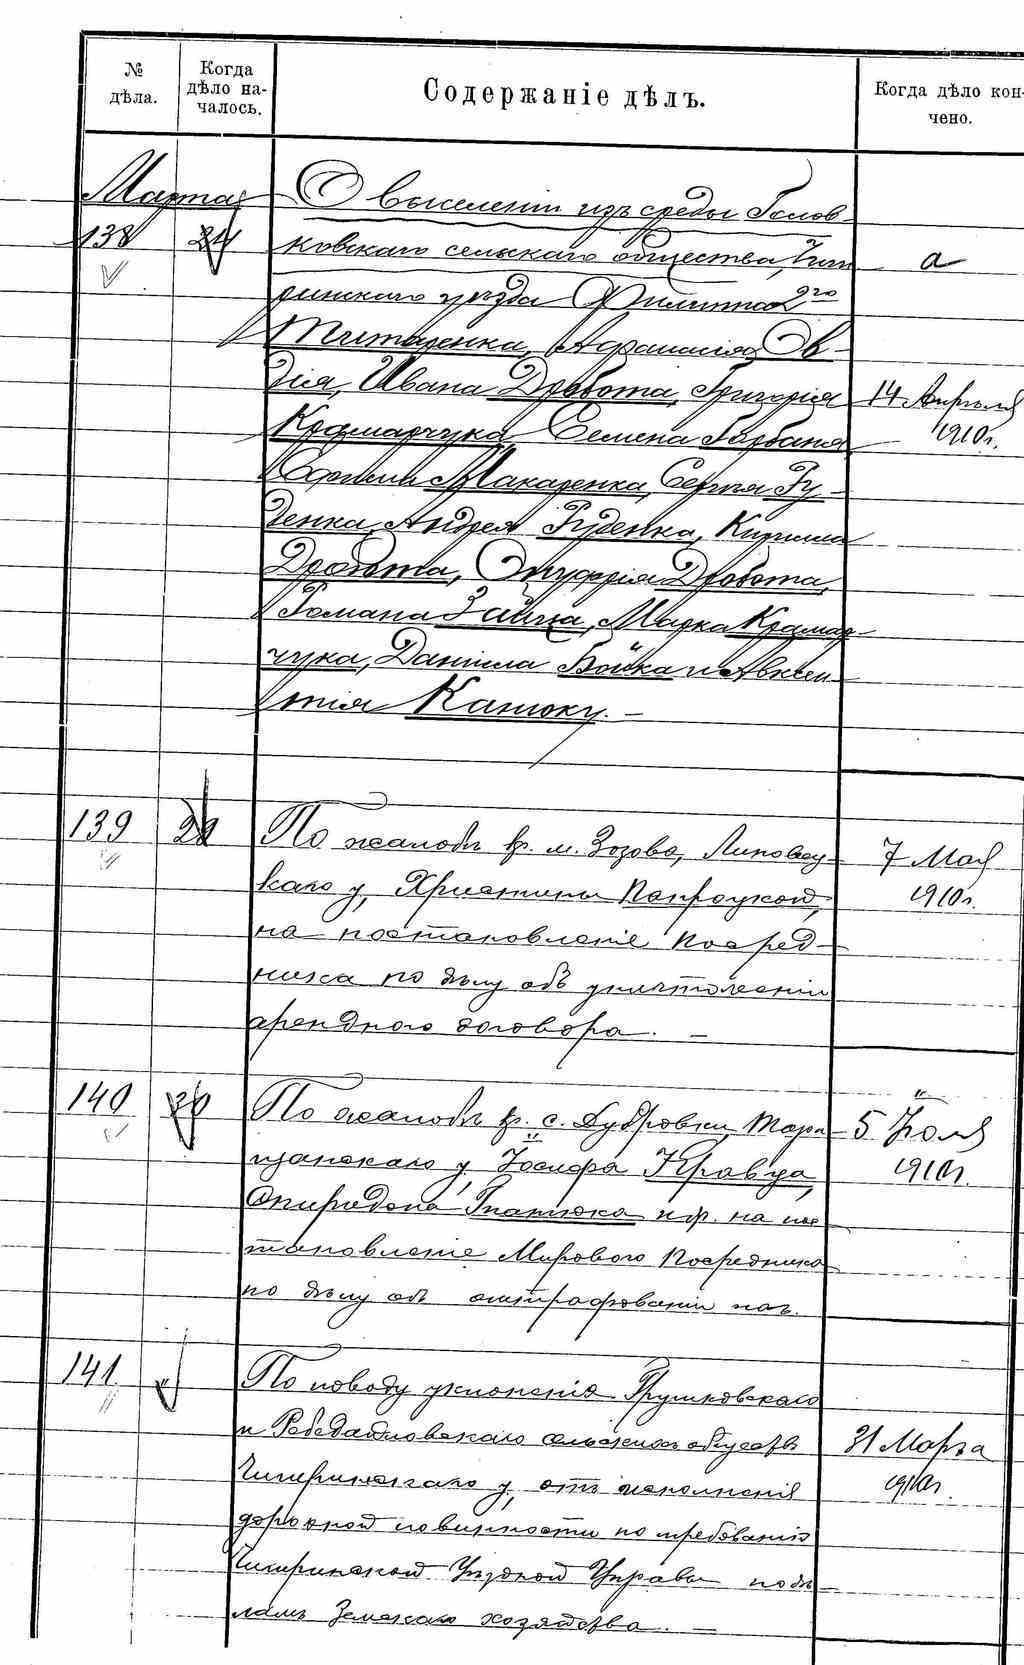 № дѣла.
Когда дѣло на-
чалось.
Содержаніе дѣлъ.
Когда дѣло кон-
чено.
Марта
138 24 О выселеніи изъ среды Голов-
ковскаго сельскаго общества, Чиги-
ринскаго уѣзда Филиппа 2го
Титаренка, Афанасія Ов-
дія, Ивана Дробота, Григорія
Крамарчука, Семена Горбаня,
Макаренка, Сергѣя Ру-
денка, Андрея Руденка, Кирилла
Дробота, Онуфрія Дробота,
Романа Зайца, Марка Крамар-
чука, Даніила Бойка и Авксен-
тія Канюку. —
а
14 Апрѣля
1910 г.
139 29 По жалобѣ кр. м. Зозова, Липовец-
каго у, Христины Папроцкой,
на постановленіе Посред-
ника по дѣлу объ уничтоженіи
арендного договора. —
7 Мая
1910 г.
140 30 По жалобѣ кр. с. Дубровки, Тара-
щанскаго у, Іосифа Кравца,
Спиридона Гнатюка и др. на пос
тановленіе Мирового Посредника
по дѣлу объ оштрафованіи ихъ.
5 Іюля
1910 г.
141 " По поводу уклоненія Грушковскаго
и Ребедайловскаго сельскихъ обществ
Чигиринскаго у, отъ исполненія
дорожной повинности по требованію
Чигиринской Уѣздной Управы по дѣ-
ламъ Земскаго хозяйства. —
31 Марта
1910 г.